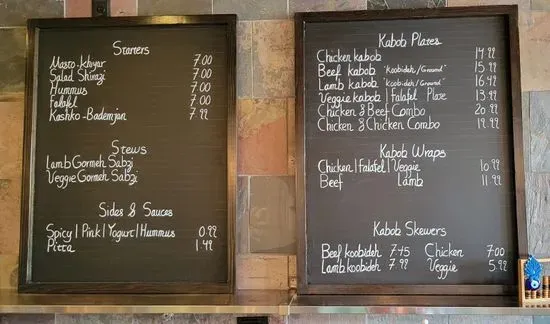 Starters
Masto-Khiyar 7.00
Salad Shirazi 7.00
Hummus 7.00
Falafel 7.00
Kashko-Bademjan 7.99
Stews
Lamb Gormeh Sabzi
Veggie Gormeh Sabzi
Sides & Sauces
Spicy | Pink | Yogurt | Hummus 0.99
Pitta 1.49
Kabob Plates
Chicken kabob 14.99
Beef kabob "koobideh/Ground" 15.99
Lamb kabob "koobideh/Ground" 16.49
Veggie kabob | Falafel Plate 13.99
Chicken & Beef Combo 20.99
Chicken & Chicken Combo 19.99
Kabob Wraps
Chicken | Falafel | Veggie 10.99
Beef Lamb 11.99
Kabob Skewers
Beef koobideh 7.45 Chicken 7.00
Lamb koobideh 7.99 Veggie 5.99